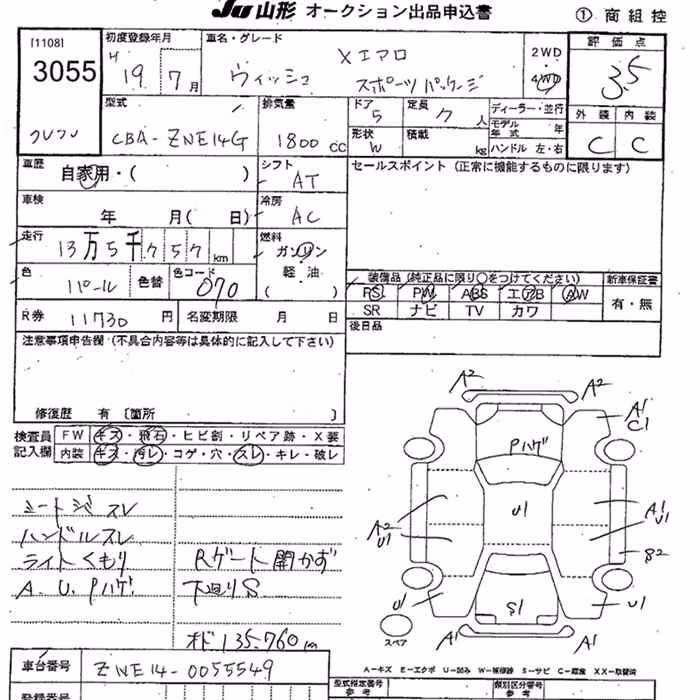 JU 山形 オークション出品申込書
① 商組控
[1108]
3055
初度登録年月
H 19 年 7 月
車名・グレード
Xエアロ
ウィッシュ スポーツパッケージ
2WD
4WD
評価点
3.5
型式
CBA-ZNE14G
排気量
1800 cc
ドア
5
定員
7 人
ディーラー・並行
モデル年式 年
形状
W
積載
kg
ハンドル 左・右
外装 内装
C C
車歴
自家用・( )
シフト
AT
セールスポイント (正常に機能するものに限ります)
車検
年 月( 日)
冷房
AC
走行
13万5千757 km
燃料
ガソリン
軽・油
( )
色
パール
色替
色コード
070
装備品 (純正品に限り○をつけてください)
新車保証書
PS PW ABS エアB AW
有・無
SR ナビ TV カワ
R券
11730 円
名変期限 月 日
後日品
注意事項申告欄 (不具合内容等は具体的に記入して下さい)
修復歴 有 〔箇所 〕
検査員
記入欄
FW キズ・飛石・ヒビ割・リペア跡・X要
内装 キズ・汚レ・コゲ・穴・スレ・キレ・破レ
シートジミスレ
ハンドルスレ
ライトくもり
A. U. Pハゲ
Rゲート開かず
下廻りS
オド135.760km
A2
A2
A1
C1
Pハゲ
A2
U1
U1
A1
U1
S2
U1
S1
U1
スペア
A1
A1
車台番号
ZNE14-0055549
A-キズ E-エクボ U-凹み W-補修跡 S-サビ C-腐蝕 XX-取替済
登録番号
型式指定番号
参考
類別区分番号
参考